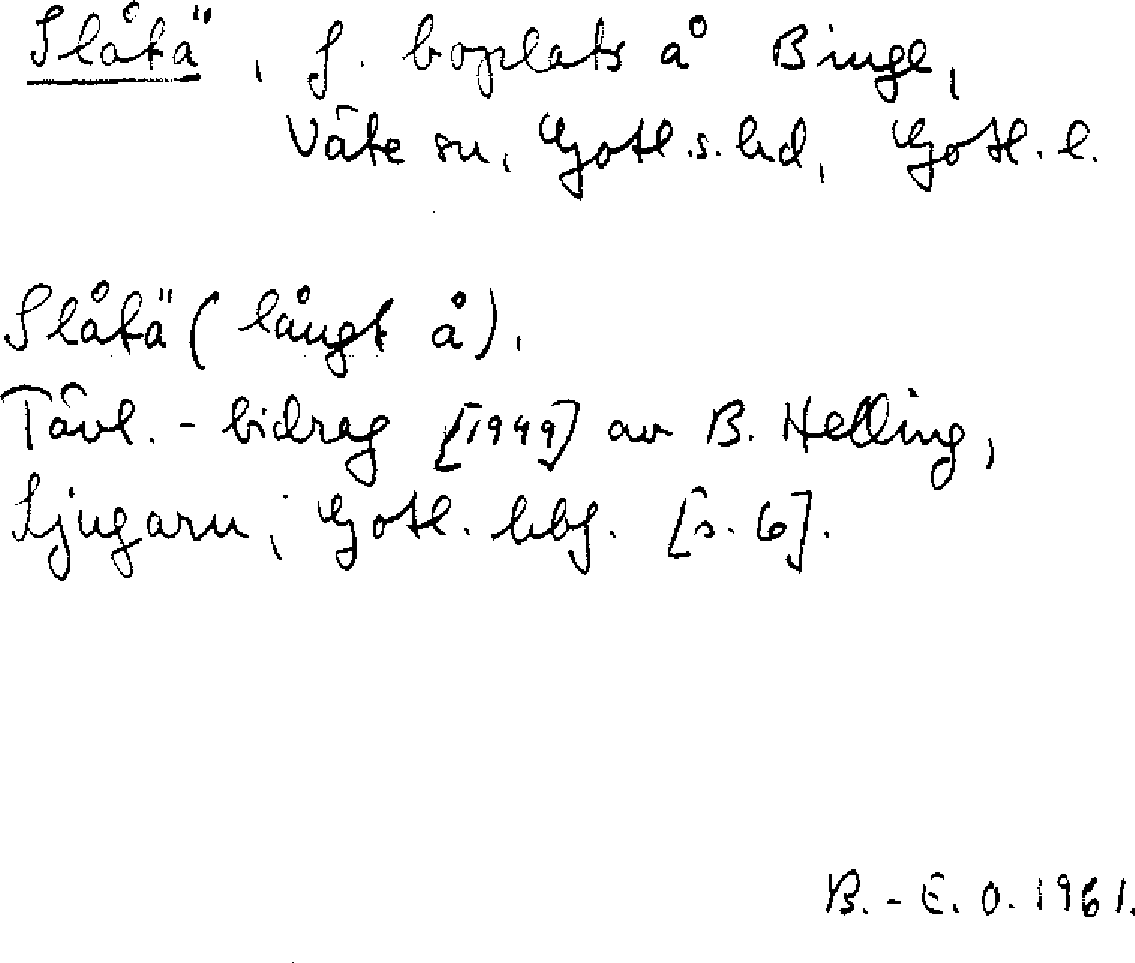 Slåtä", f. boplats å Binge,
Väte sn, Gotl.s.hd, Gotl.l.
Slåtä" (långt å).
Tävl.-bidrag [1949] av B. Helling,
Ljugarn, Gotl. hbf. [s. 6].
B.-E. O. 1961.